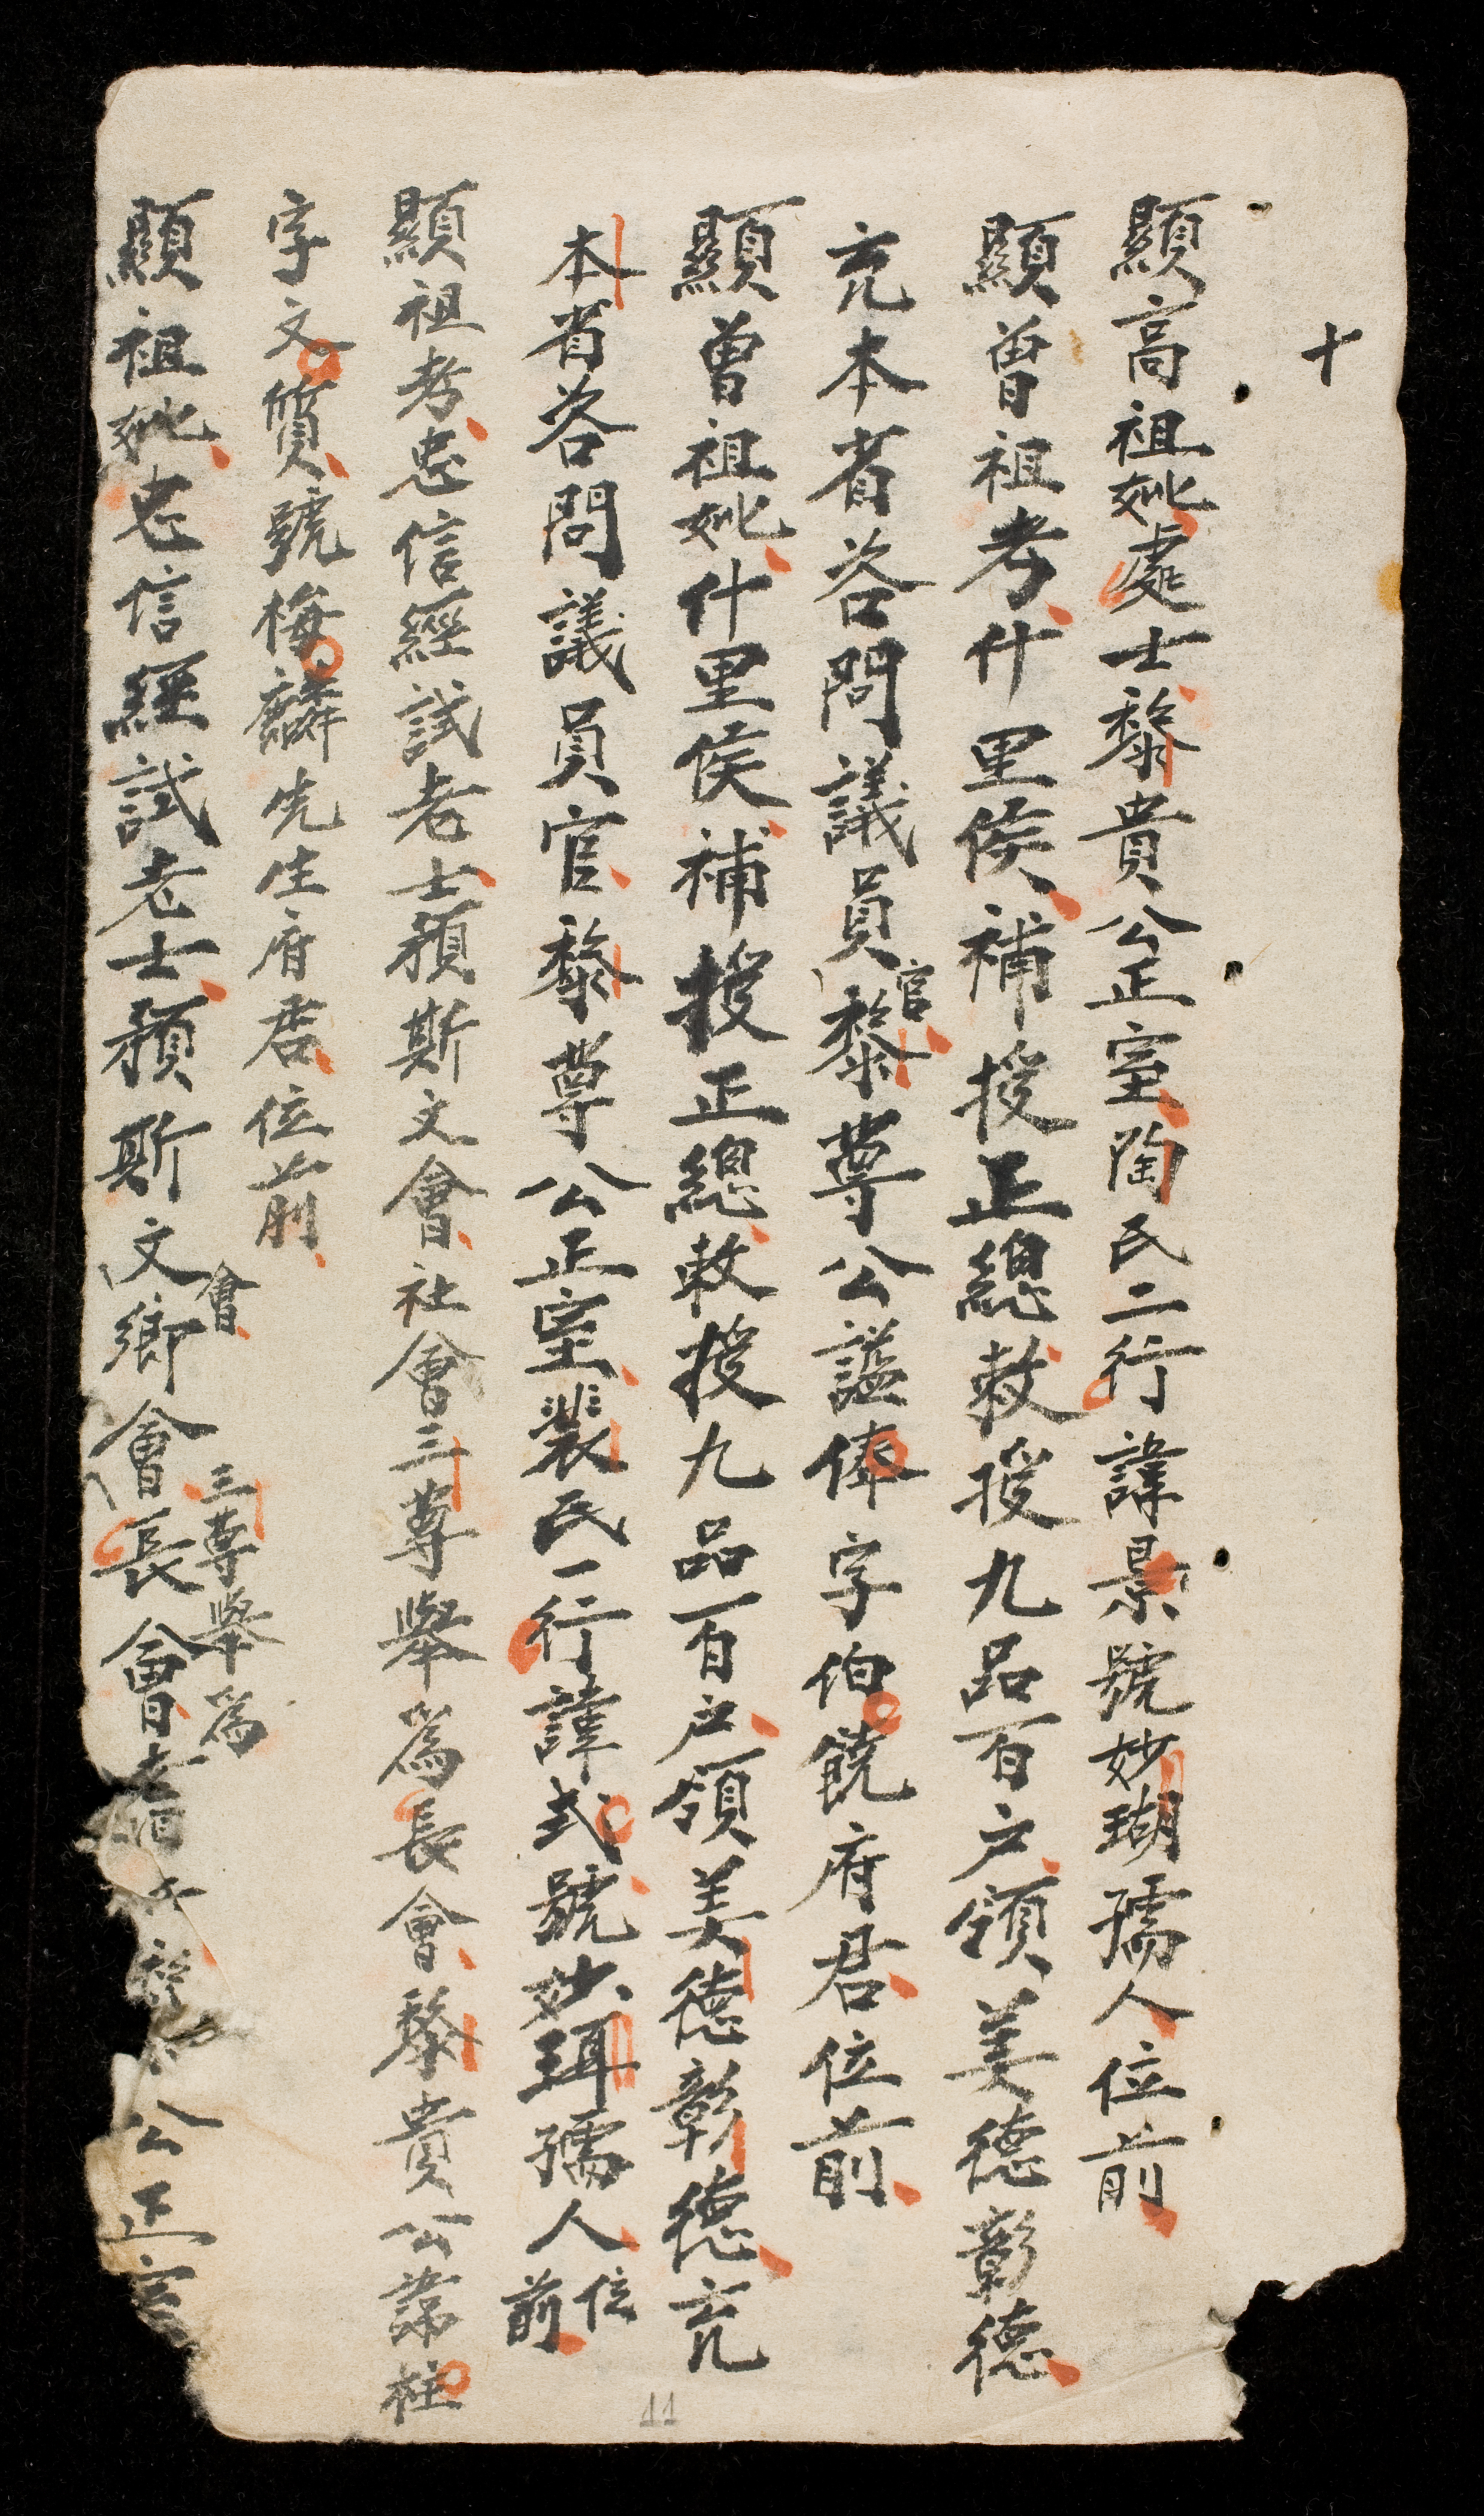 十
顯高祖妣處士黎貴公正室陶氏二行諱景號妙瑚孺人位前
顯曾祖考什里侯補授正總敕授九品百户領美德彰德
充本省咨問議員官黎尊公謚俸字伯饒府君位前
顯曾祖妣什里侯補授正總敕授九品百户領美德彰德充
本省咨問議員官黎尊公正室裴氏一行諱式號妙珥孺人位前
顯祖考忠信經試老士預斯文會社會三尊舉為長會黎貴公諱柱
字文質號梅麟先生府君位前
顯祖妣忠信經試老士預斯文會鄉會三尊舉為長會公正室
11